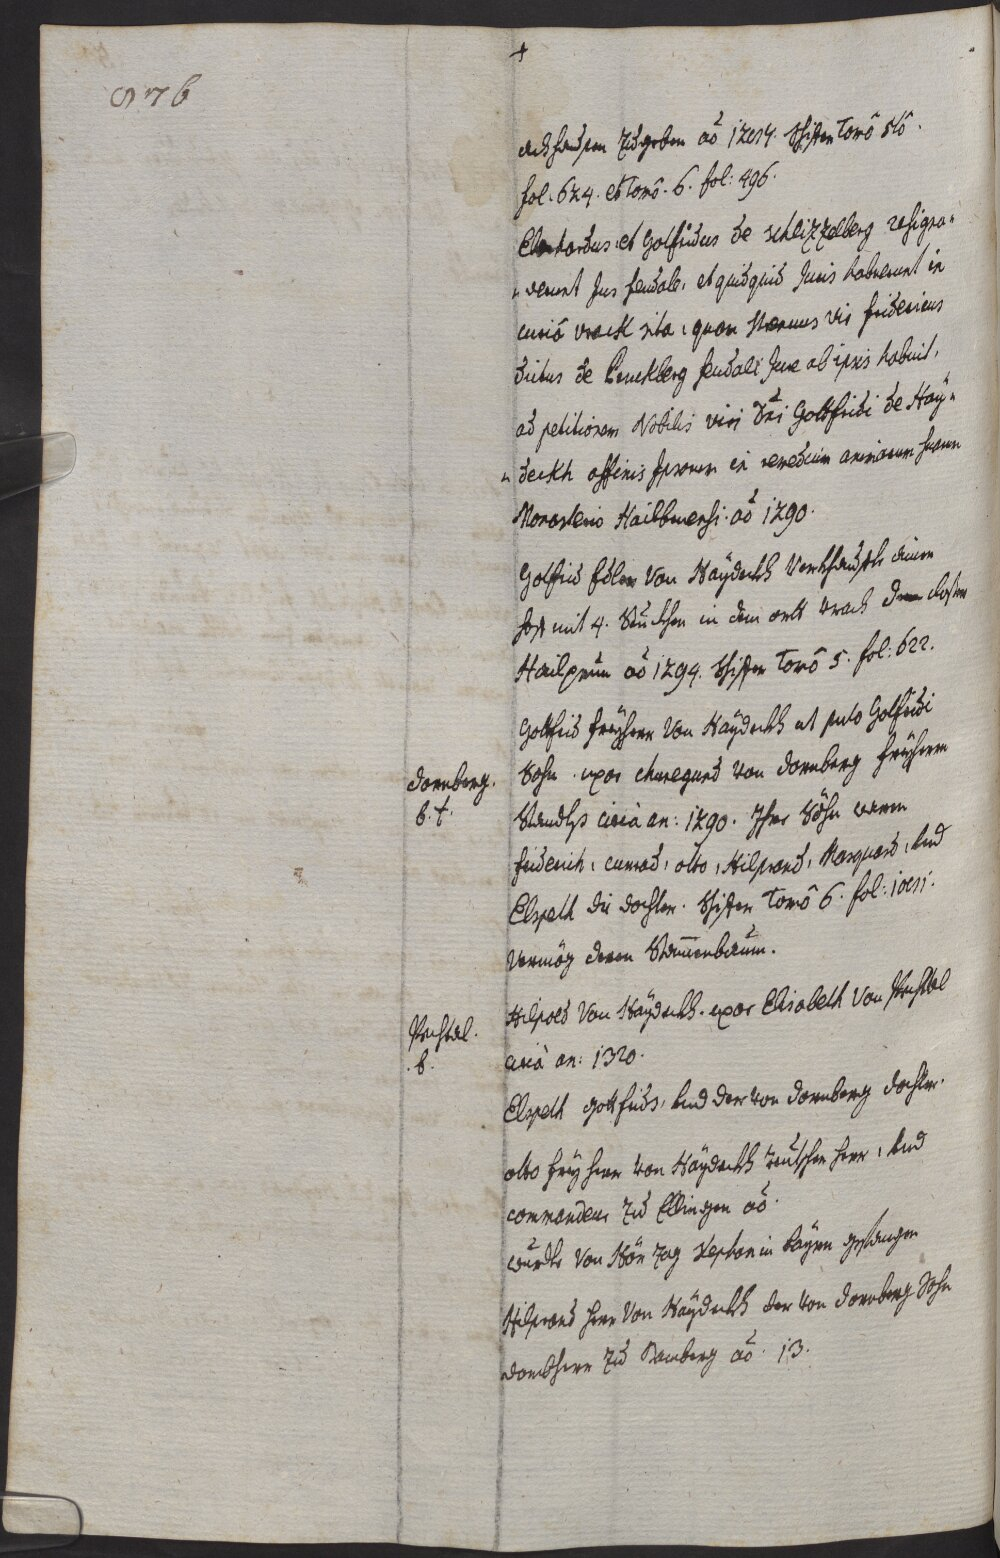 976
+
zu geben aõ 1284. Schifften Tomô 5tô.
fol. 624. et Tomô. 6. fol: 496.
Eberhardus et Golfridus de schlizzelberg resigna„
„verunt Jus feudale, et quidquid Juris habuerunt in
curiâ vrack sita, quam Strenuus vir fridericus
dictus de Lenckberg feudali Jure ab ipsis habuit,
ad petitionem Nobilis viri Dni Gottfridi de Hay„
„deckh affinis Ipsorum in remedium animarum suarum
Monasterio Hailbrunensi. aõ 1290.
Golfrid Edler Von Haydeckh Verkhauffte einen
hoff mit 4. Stuckhen in dem orth vrach dem closter
Hailprun aõ 1294. Schifften Tomô 5. fol: 622.
Gottfrid freyherr Von Haydeckh ut puto Golfridi
dornberg.
b. t.
Sohn. uxor chunegund von dornberg freyherrn
Standts circà an: 1290. Ihre Söhn waren
friderich, cunrad, otto, Hilprand, Marquard, und
Elspeth die dochter. Schifften Tomô 6. fol:
Vermög deren Stammenbaum.
Hilpold Von Haydeckh. uxor Elisabeth Von
b.
circà an: 1320.
Elspeth gottfrids, und der von dornberg dochter.
otto freyherr von Haydeckh teutscher herr, und
commandeur zu Ellingen aõ.
wurdte Von Hörzog Stephan in bayrn gefangen
Hilprand herr Von Haydeckh der von dornberg Sohn
dombherr zu Bamberg aõ. 13.